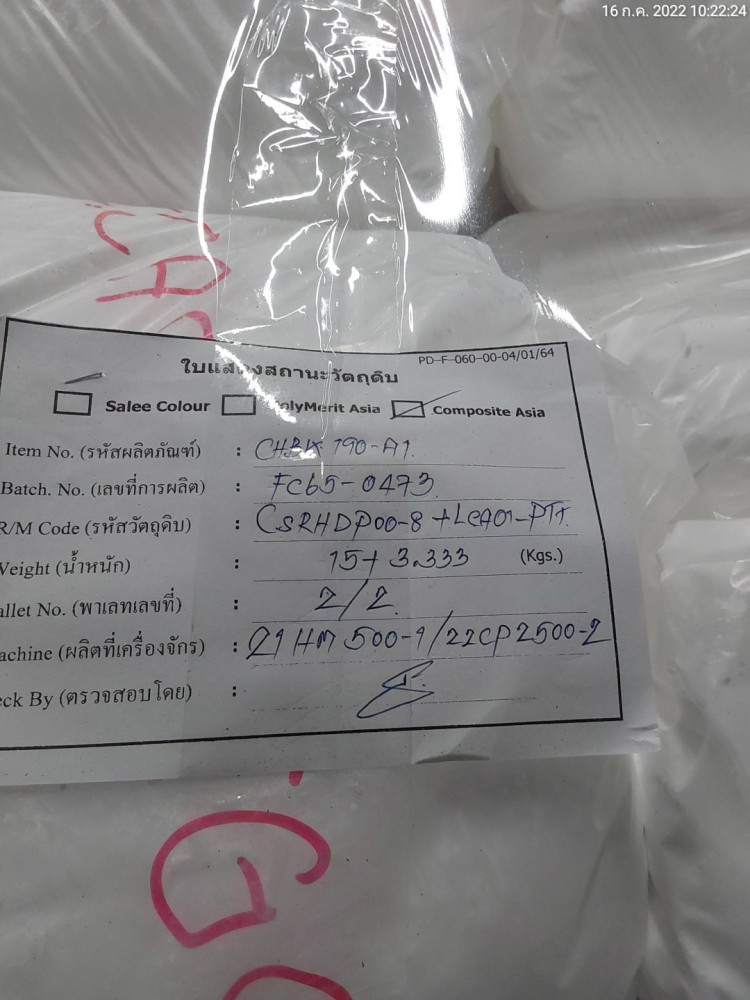 16 ก.ค. 2022 10:22:24
PD-F-060-00-04/01/64
ใบแสดงสถานะวัตถุดิบ
Salee Colour olyMerit Asia Composite Asia
Item No. (รหัสผลิตภัณฑ์) : CHBK 790-A1.
Batch. No. (เลขที่การผลิต) : FC65-0473
R/M Code (รหัสวัตถุดิบ) : CSRHDP00-8 +LCA01-PTT.
Weight (น้ำหนัก) : 15+3.333 (Kgs.)
allet No. (พาเลทเลขที่) : 2/2.
achine (ผลิตที่เครื่องจักร) : 21HM500-1/22CP2500-2
eck By (ตรวจสอบโดย) :